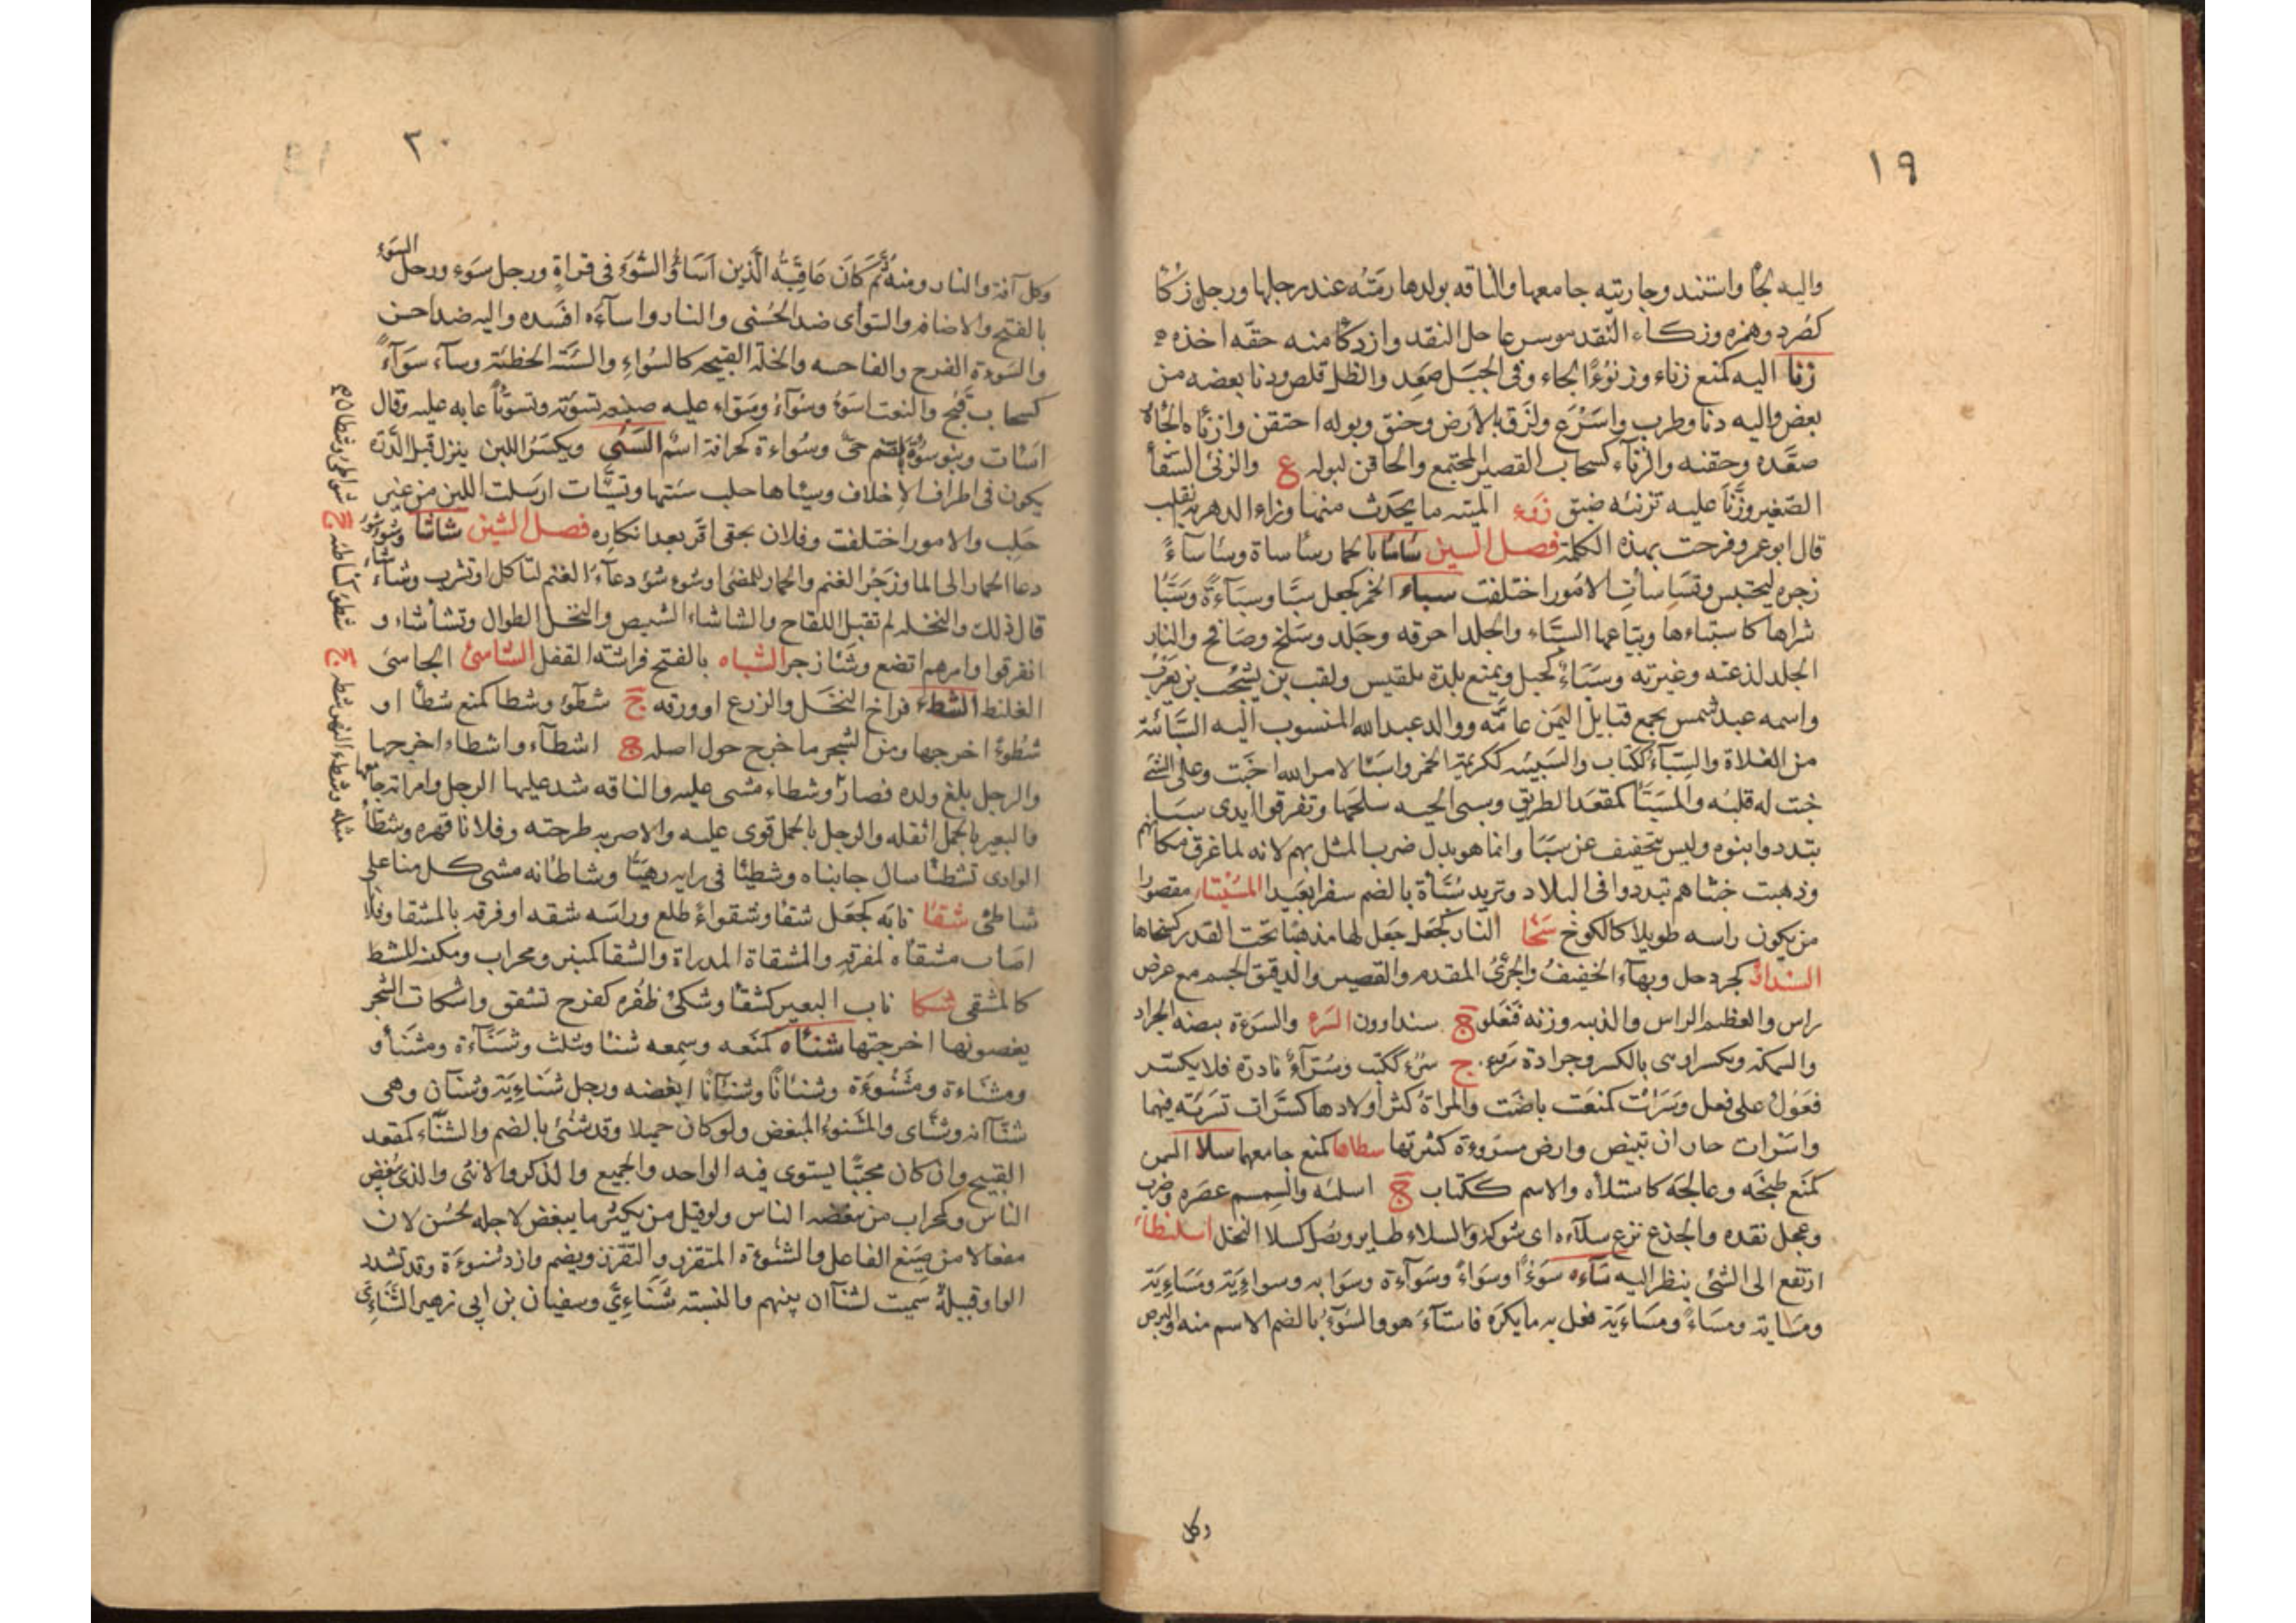 ١٩
واليه لجأ واستند وجاريته جامعها والناقه بولدها رمته عند رجلها ورجل زكأ
كصرد وهمزه وزكاء النقد موسر عاجل النقد وازدكأ منه حقه اخذه
زنأ اليه كمنع زناء وزنوءا لجاء وفى الجبل صعد والظل قلص ودنا بعضه من
بعض واليه دنا وطرب واسرع ولزق بالارض وخنق وبوله احتقن وازناه الجاه
صعده وحقنه والزناء كسحاب القصير المجتمع والحاقن لبوله ع والزنئ السقأ
الصغير وزنأ عليه تزنئه ضيق زوء المنيه ما يحدث منها وزاء الدهر به انقلب
قال ابو عمر وفرحت بهذه الكلمة فصل السين سأسأ بالحمار سأساة وسأساءً
زجره ليحتبس وتسأسأت الامور اختلفت سباء الخمر كجعل سبأ وسباءة ومسبأ
شراها كاستباءها وبياعها السباء والجلد احرقه وجلد وسلخ وصافح والنار
الجلد لذعته وغيرته وسباء كجبل ويمنع بلدة بلقيس ولقب بن يشجب بن يعرب
واسمه عبد شمس يجمع قبايل اليمن عامه ووالد عبد الله المنسوب اليه السبائة
من الغلاة والسباء ككتاب والسبيئه ككريمة الخمر واسبا لامر الله اخبت وعلى الشئ
خبت له قلبه والمسبأ كمقعد الطريق وسبئ الحيه سلخها وتفرقوا ايدى سبا
تبددوا بنوه وليس بتخفيف عن سبأ وانما هو بدل ضرب المثل بهم لانه لما غرق مكانهم
وذهبت جناتهم تبددوا فى البلاد وتريد سبأة بالضم سفرا بعيدا المسبنتا مقصورا
من يكون راسه طويلا كالكوخ سخأ النار كجعل جعل لها مذهبا تحت القدر كسخاها
السندأو كجردحل وبهاء الخفيف والجرئ المقدم والقصير والدقيق الجسم مع عرض
راس والعظيم الراس والذيبه وزنه فنعلو ج سنداوون السرء والسروة بيضه الجراد
والسمكة ويكسر او هى بالكسر وجرادة سروء ج سرء ككتب وسراء نادرة فلا يكسر
فعول على فعل وسرات كمنعت باضت والمراة كثر اولادها كسرات تسرئه فيهما
واسرات حان ان تبيض وارض مسروءة كثيرتها سطأها كمنع جامعها سلأ السمن
كمنع طبخه وعالجه كاستلأه والاسم ككتاب ج اسلئه والسمسم عصره وضرب
وعجل نقده والجذع نزع سلاءه اى شوكه والسلاء طاير ونصل كسلا النخل اسلنطاء
ارتفع الى الشئ ينظر اليه ساءه سوءا وسواءً وسواءة وسوايه وسوائية ومسائية
ومسايه ومساءً ومسائية فعل به ما يكره فاستاء هو والسوء بالضم الاسم منه والبرص
وكل
٢٠
وكل آفة والنار ومنه ثم كان عاقبة الذين اساؤا السوء فى قراة ورجل سوء ورجل السوء
بالفتح والاضافه والسوأى ضد الحسنى والنار واساءه افسده واليه ضد احسن
والسوءة الفرج والفاحشه والخلة القبيحه كالسواء والسيئة الخطئة وساء سواءً
كسحاب قبح والنعت اسوء وسواء وسواء عليه صنيعه تسوئة وتسويئا عابه عليه وقال
اسات وبنو سوءة بالضم حى وسواءة كخرافة اسم السئ ويكسر اللبن ينزل قبل الدرة
يكون فى اطراف الاخلاف وسياها حلب سئتها وتسيات ارسلت اللبن من غير
حلب والامور اختلفت وفلان بحقى اقر بعد انكاره فصل الشين شاشا وشؤشؤ
دعا الحمار الى الما وزجر الغنم والحمار للمضئ او شوء شؤ دعاء الغنم لتاكل او تشرب وشاء شاء
قال ذلك والنخله لم تقبل اللقاح والشاشاء الشيص والنخل الطوال وتشأشاء و
انفرقوا وامرهم اتضع وشاز جر الشباه بالفتح فراشة القفل الشاسئ الجاسئ
الغليظ الشطء فراخ النخل والزرع او ورقه ج شطوء وشطا كمنع شطأ او
شطوءا اخرجها ومن الشجر ما خرج حول اصله ج اشطاء واشطاء اخرجها
والرجل بلغ ولده فصار وشطاء مشى عليه والناقه شد عليها الرحل وامراته جامعها
والبعير بالحمل اثقله والرجل بالحمل قوى عليه والام به طرحته وفلانا قهره وشطأ
الوادى تشطئا سال جانباه وشطيأ فى رايه رهيأ وشاطانه مشى كل منا على
شاطئ شقأ نابه كجعل شقأ وشقواءً طلع وراسه شقه او فرقه بالمشقا وفلانا
اصاب مشقاه لمفرقه والمشقاة المدراة والمشقا كمنبر ومحراب ومكنه المشط
كالمشقى شكأ ناب البعير كشقأ وشكئ ظفره كفرح تشقق واشكات الشجر
بغصونها اخرجتها شنأه كمنعه وسمعه شنأ ويثلث وشناءة ومشنأ و
ومشناءة ومشنوءة وشنئانا وشنآنا ابغضه ورجل شنائية وشنآن وهى
شنآنه وشنأى والمشنوء المبغض ولو كان جميلا وقد شنئ بالضم والشناء كمقعد
القبيح وان كان محببا يستوى فيه الواحد والجميع والذكر والانثى والذى يبغض
الناس وكمحراب من يبغضه الناس ولو قيل من يكثر ما يبغض لاجله لحسن لان
مفعالا من صيغ الفاعل والشنوءة المتقزز والتقزز ويضم وازد شنوءة وقد تشدد
الواو قبيلة سميت لشنآن بينهم والنسبه شنائى وسفيان بن ابى زهير الشنائى